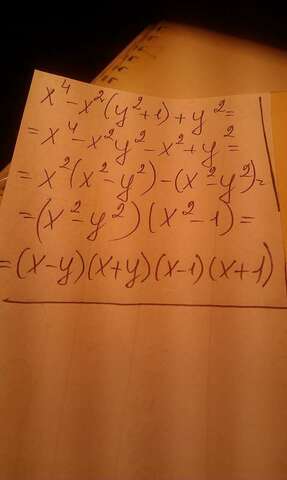 x⁴-x²(y²+1)+y²=
=x⁴-x²y²-x²+y²=
=x²(x²-y²)-(x²-y²)=
=(x²-y²)(x²-1)=
=(x-y)(x+y)(x-1)(x+1)